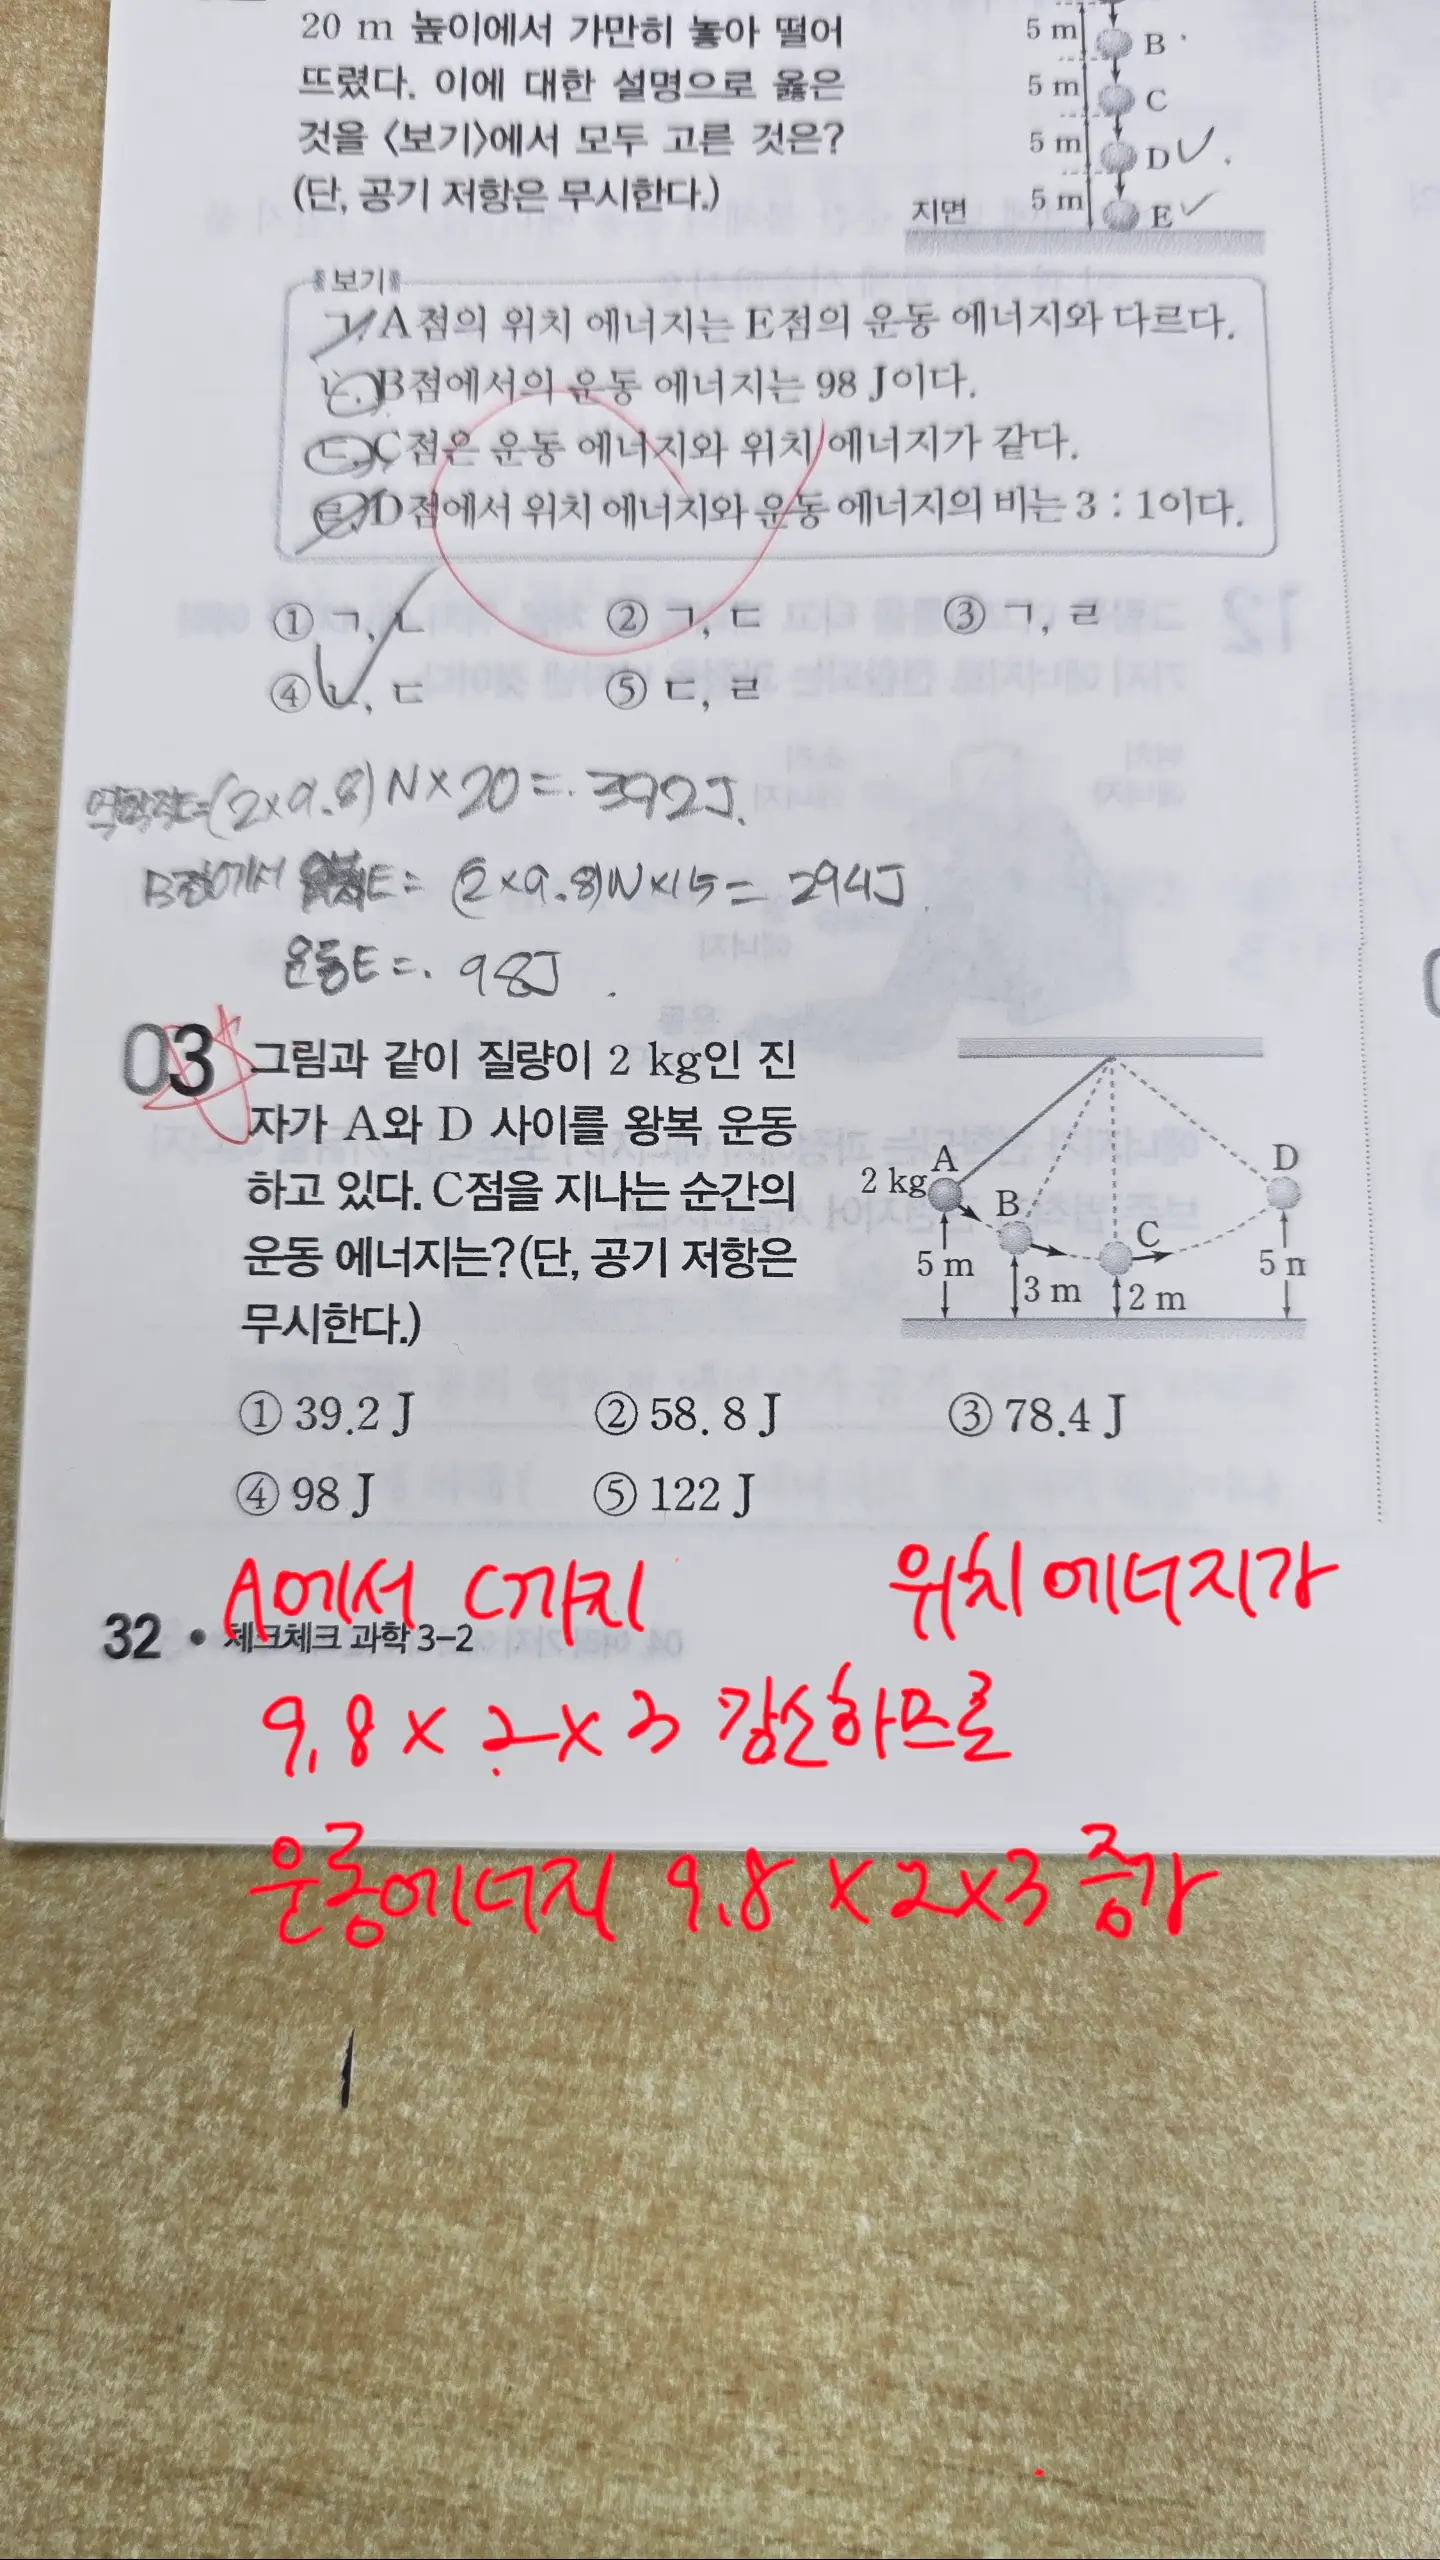 20 m 높이에서 가만히 놓아 떨어
뜨렸다. 이에 대한 설명으로 옳은
것을 <보기>에서 모두 고른 것은?
(단, 공기 저항은 무시한다.)
5 m B
5 m C
5 m D
5 m E
지면
보기
ㄱ. A점의 위치 에너지는 E점의 운동 에너지와 다르다.
ㄴ. B점에서의 운동 에너지는 98 J이다.
ㄷ. C점은 운동 에너지와 위치 에너지가 같다.
ㄹ. D점에서 위치 에너지와 운동 에너지의 비는 3 : 1이다.
① ㄱ, ㄴ ② ㄱ, ㄷ ③ ㄱ, ㄹ
④ ㄴ, ㄷ ⑤ ㄷ, ㄹ
역학적E=(2×9.8)N×20=392J.
B점에서 E= (2×9.8)N×15= 294J
운동E=. 98J
03 그림과 같이 질량이 2 kg인 진
자가 A와 D 사이를 왕복 운동
하고 있다. C점을 지나는 순간의
운동 에너지는?(단, 공기 저항은
무시한다.)
A D
2 kg B
C
5 m 3 m 2 m 5 m
① 39.2 J ② 58. 8 J ③ 78.4 J
④ 98 J ⑤ 122 J
A에서 C까지 위치에너지가
32 • 체크체크 과학 3-2
9.8 × 2 × 3 감소하므로
운동에너지 9.8 × 2 × 3 증가